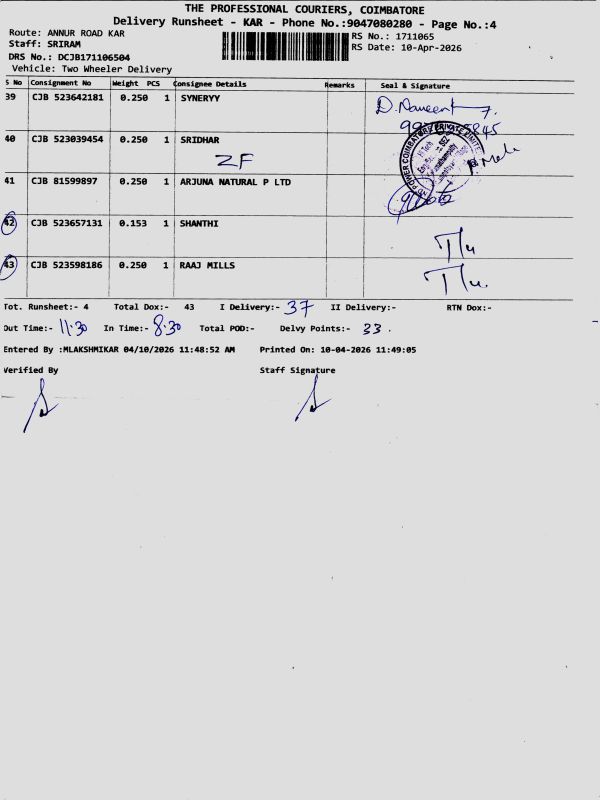 THE PROFESSIONAL COURIERS, COIMBATORE
Delivery Runsheet - KAR - Phone No.:9047080280 - Page No.:4
Route: ANNUR ROAD KAR
RS No.: 1711065
Staff: SRIRAM
RS Date: 10-Apr-2026
DRS No.: DCJB171106504
Vehicle: Two Wheeler Delivery
S No Consignment No Weight PCS Consignee Details Remarks Seal & Signature
39 CJB 523642181 0.250 1 SYNERYY
40 CJB 523039454 0.250 1 SRIDHAR
ZF
41 CJB 81599897 0.250 1 ARJUNA NATURAL P LTD
42 CJB 523657131 0.153 1 SHANTHI
43 CJB 523598186 0.250 1 RAAJ MILLS
Tot. Runsheet:- 4 Total Dox:- 43 I Delivery:- 37 II Delivery:- RTN Dox:-
Out Time:- 11:30 In Time:- 8:30 Total POD:- Delvy Points:- 33 .
Entered By :MLAKSHMIKAR 04/10/2026 11:48:52 AM Printed On: 10-04-2026 11:49:05
Verified By Staff Signature